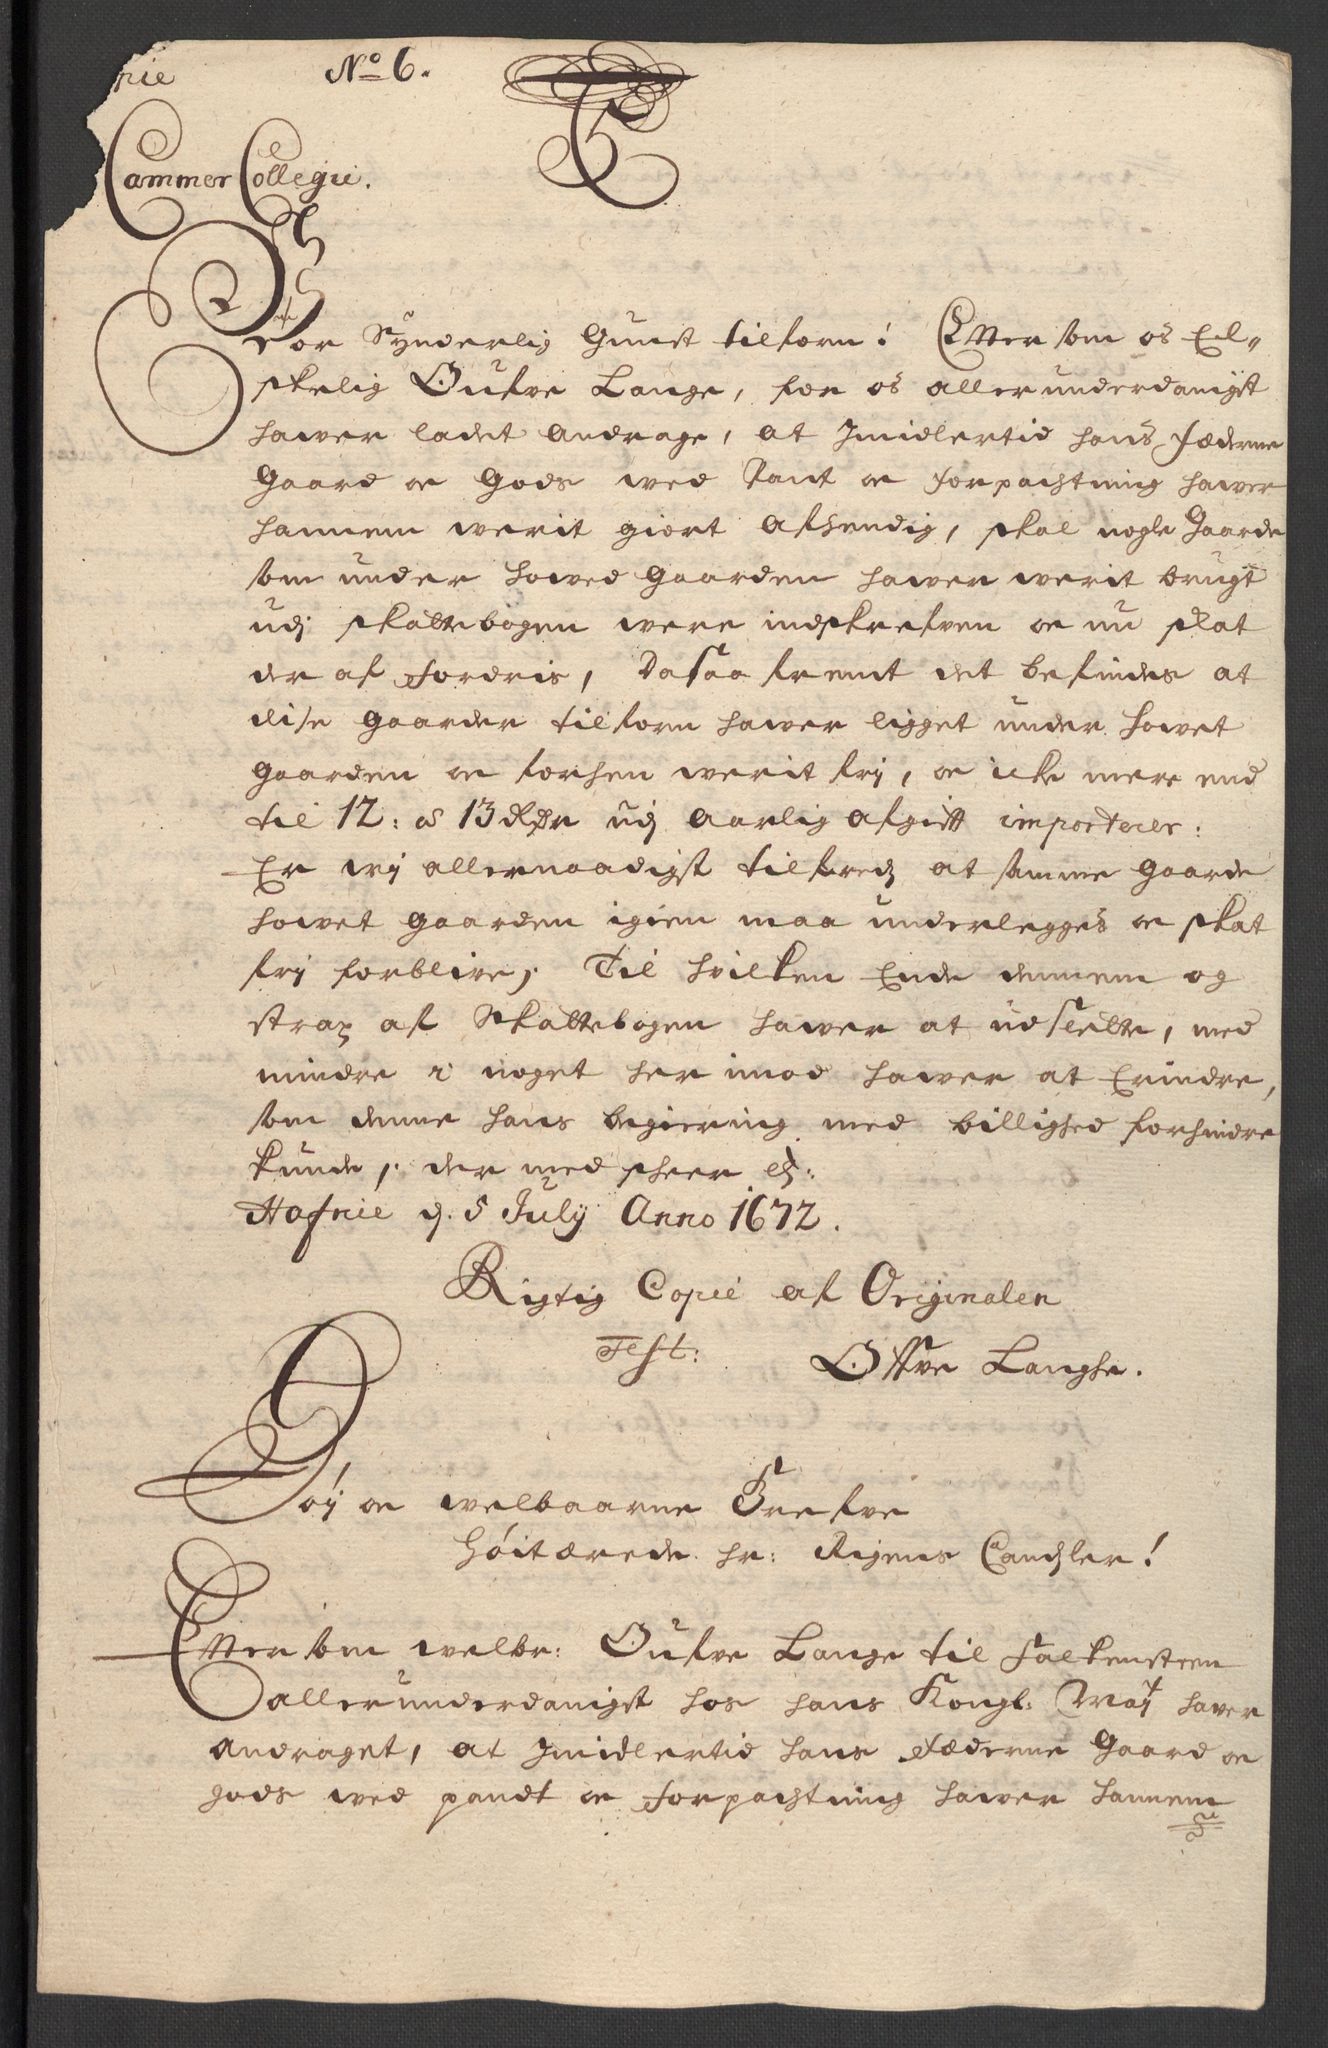 pie No 6.
C
Cammer Collegie.
Vor Synderlig Gunst tilforn! Efter som os El„
skelig Oufve Lange, for os allerunderdanigst
hawer ladet andrage, at Imidlertid hans fæderne
Gaard oc Gods wed Pant oc forpachtning hawer
hannem werit giort afhendig, skal nogle Gaarde
som under howed gaarden hawer werit brugt
udj skattebogen were indskrefven oc nu skat
der af fordris, Dasaa fremt det befindes at
disse gaarder tilforn hawer ligget under howet
gaarden oc forhen werit frij, oc icke mere end
til 12: a 13 Rdr udj aarlig afgift importerer:
Er wij allernaadigst tilfredz at samme gaarde
howet gaarden igien maa underlegges oc skat
frij forblive; Til hvilken Ende dennem og
strax af Skattebogen hawer at udslette, med
mindre i noget her imod hawer at Erindre,
som denne hans begiering med billighed forhindre
kunde, der med skeer etz:
Hafnie d. 5 Julij Anno 1672.
Rigtig Copie af Originalen
Test: Offve Langhe.
Höy oc welbaarne Grefve
Höitærede hr: Rigens Candzler!
Efter som welbr: Oufve Lange til Falkensteen
allerunderdanigst hos hans Kongl: Mayt haver
andraget, at Imidlertid hans fæderne Gaard oc
gods wed pandt oc forpachtning hawer hannem